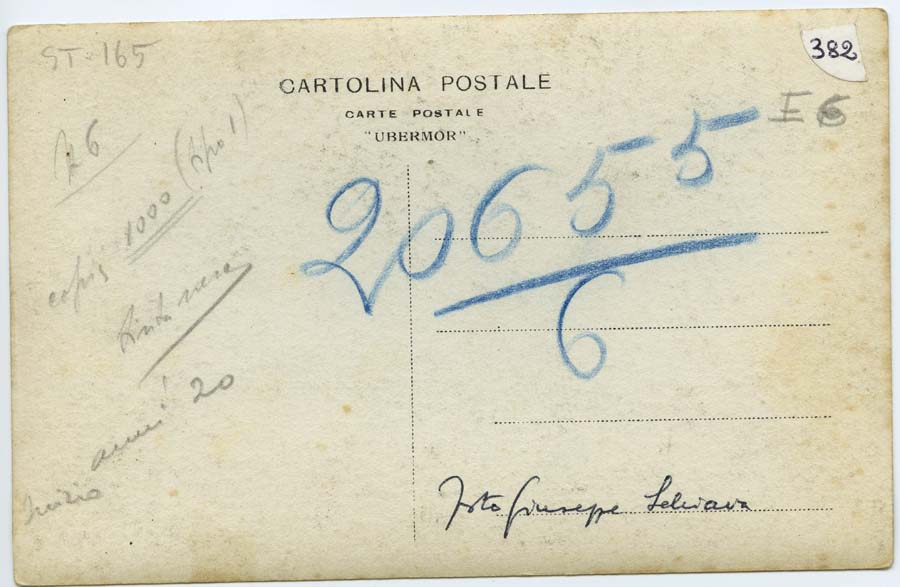 ST-165
382
CARTOLINA POSTALE
CARTE POSTALE
"UBERMOR"
I 6
76
copie 1000 (tipo 1)
tinta nera
Inizio anni 20
20655
6
Foto Giuseppe Schiava